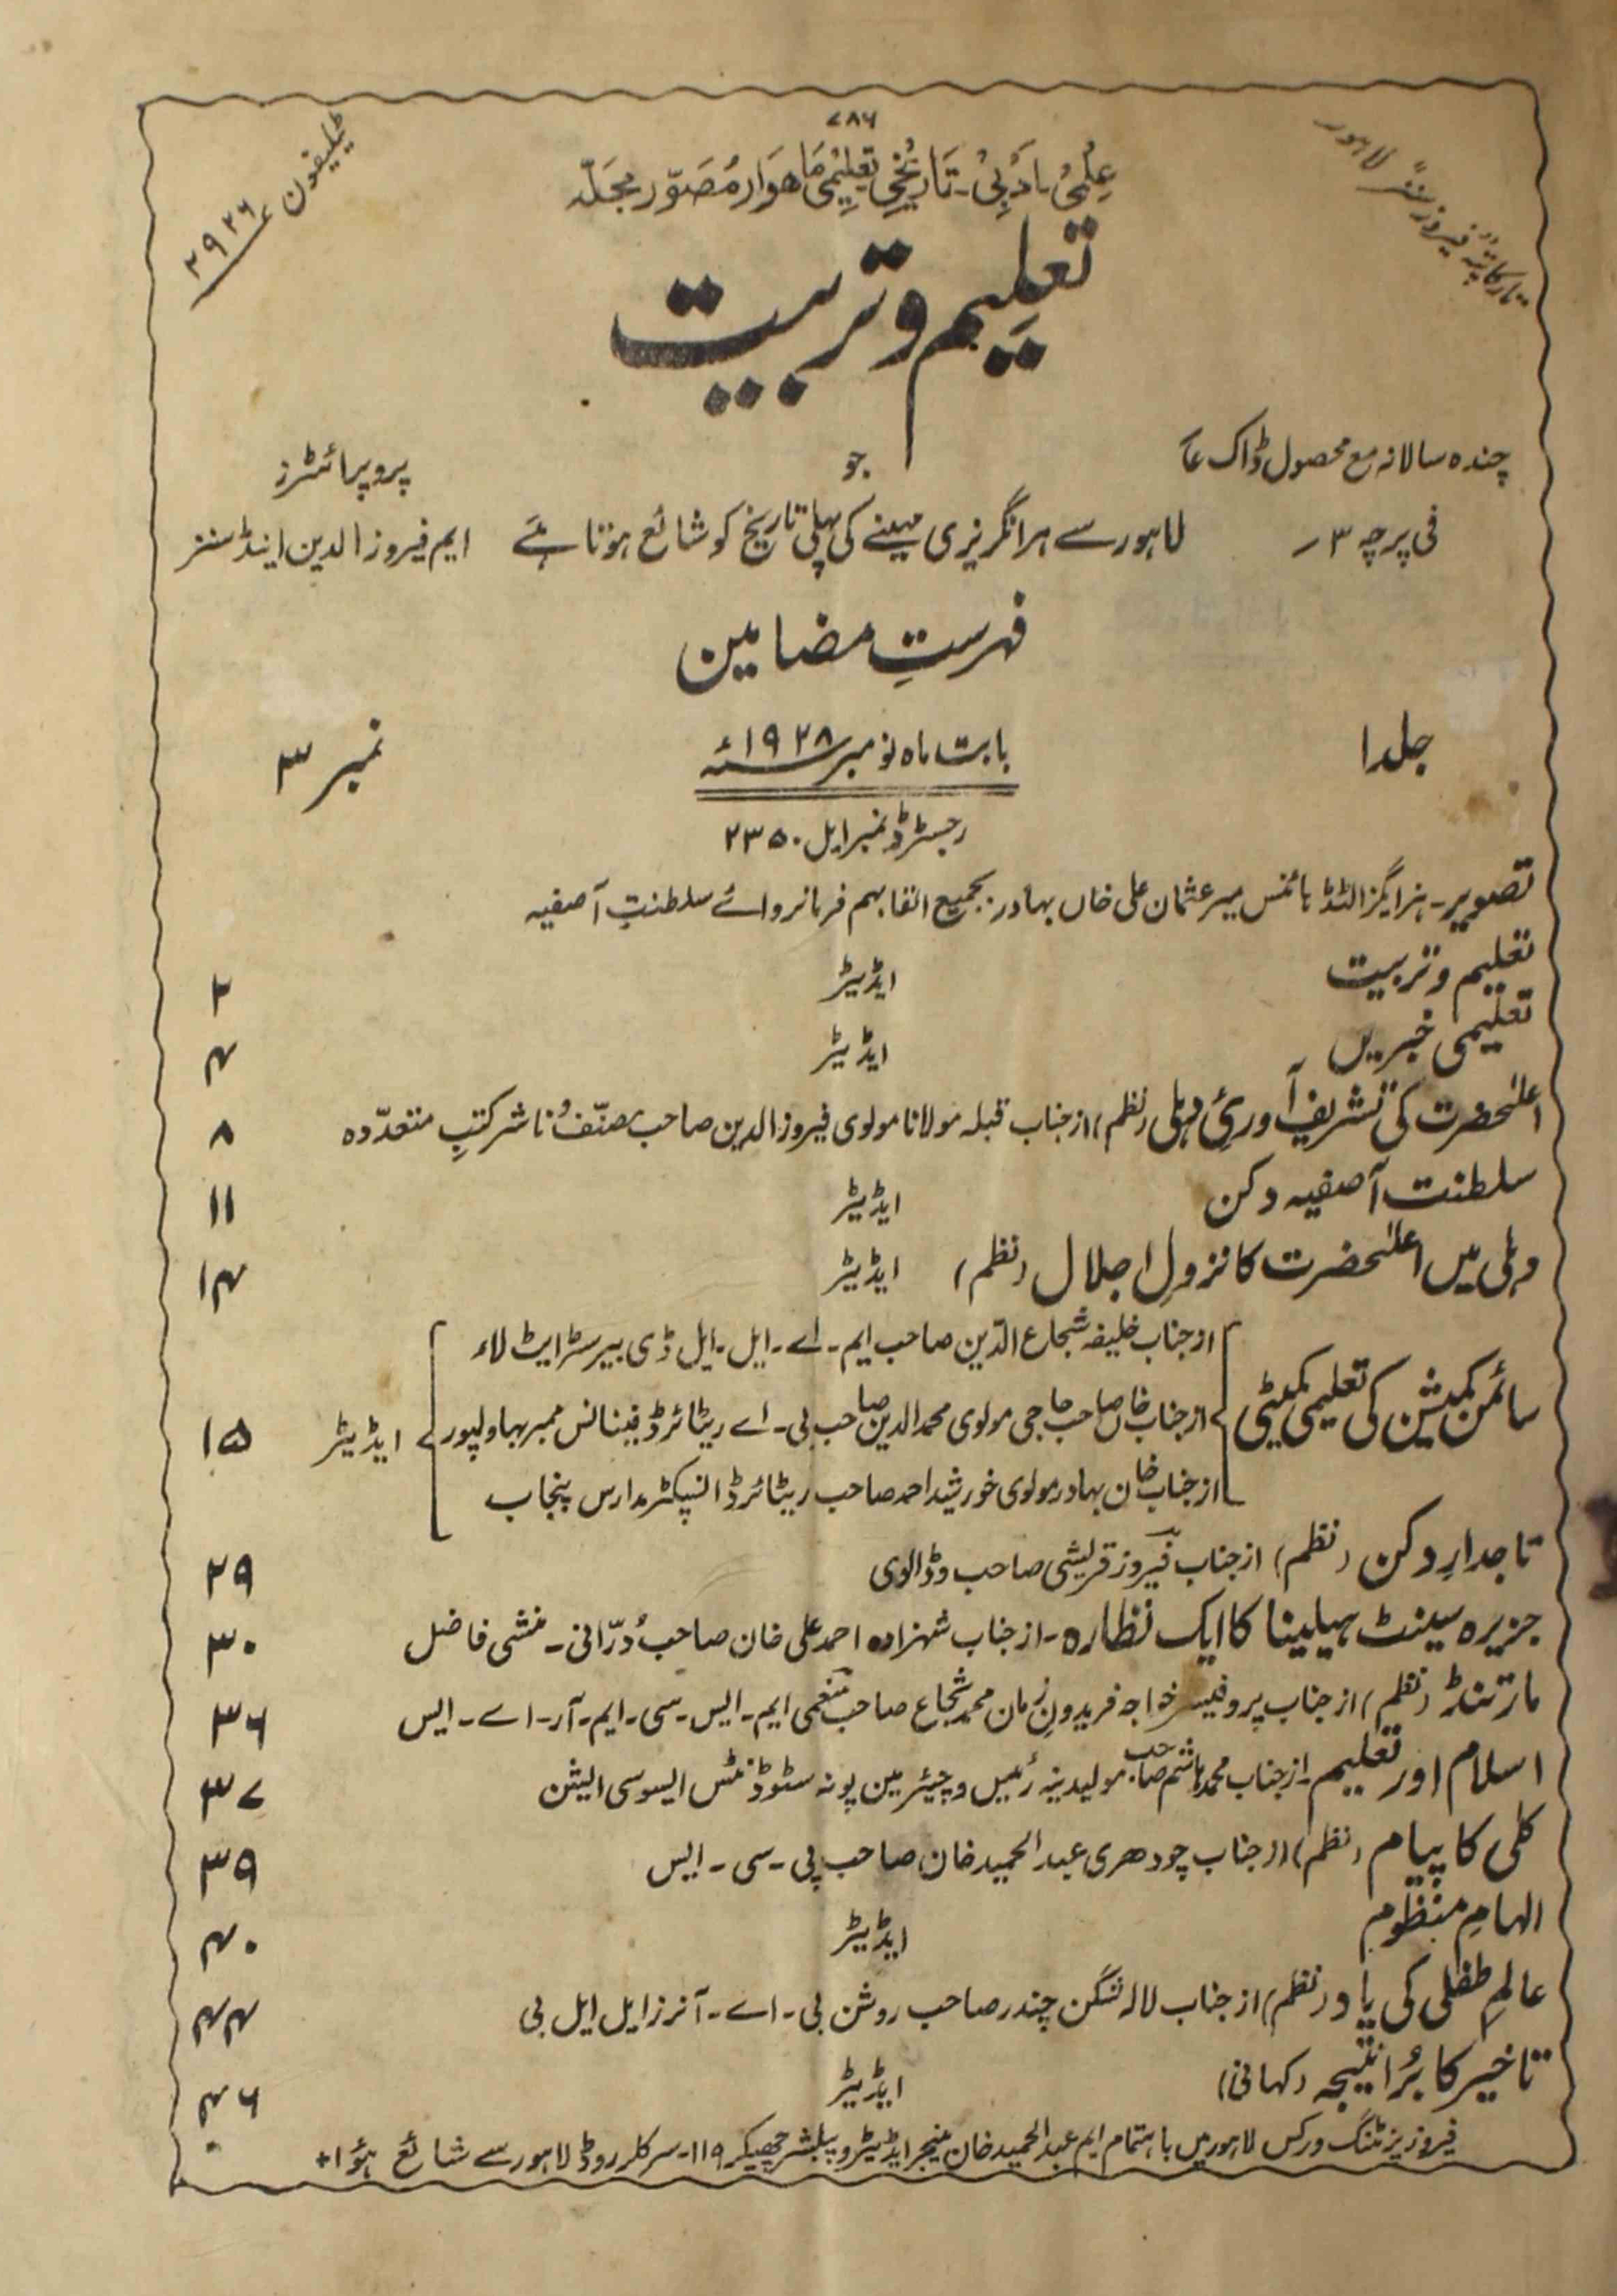 ۷۸۶
علمی۔ادبی۔تاریخی تعلیمی ماہوار مصوّر مجلّہ
تار کا پتہ فیروز سنز لاہور
ٹیلیفون ۲۹۲۶
تعلیم و تربیت
چندہ سالانہ مع محصول ڈاک
جو
پروپرائٹرز
فی پرچہ ۳؍
لاہور سے ہر انگریزی مہینے کی پہلی تاریخ کو شائع ہوتا ہے
ایم فیروزالدین اینڈ سنز
فہرستِ مضامین
جلد ۱
بابت ماہ نومبر ۱۹۲۸ء
نمبر ۳
رجسٹرڈ نمبر ایل ۲۳۵۰
تصویر۔ ہز اگزالٹڈ ہائنس میر عثمان علی خاں بہادر بجمیع القابہم فرمانروائے سلطنتِ آصفیہ
تعلیم و تربیت ایڈیٹر ۲
تعلیمی خبریں ایڈیٹر ۴
اعلٰحضرت کی تشریف آورئِ دہلی (نظم) از جناب قبلہ مولانا مولوی فیروزالدین صاحب مصنّف و ناشر کتبِ متعدّدہ ۸
سلطنت آصفیہ دکن ایڈیٹر ۱۱
دہلی میں اعلٰحضرت کا نزولِ اجلال (نظم) ایڈیٹر ۱۴
از جناب خلیفہ شجاع الدّین صاحب ایم۔اے۔ایل۔ایل ڈی بیرسٹر ایٹ لاء
سائمن کمیشن کی تعلیمی کمیٹی از جناب خاں صاحب حاجی مولوی محمد الدین صاحب بی۔اے ریٹائرڈ فینانس ممبر بہاولپور ایڈیٹر ۱۵
از جناب خان بہادر مولوی خورشید احمد صاحب ریٹائرڈ انسپکٹر مدارس پنجاب
تاجدارِ دکن (نظم) از جناب فیروز قریشی صاحب وڈالوی ۲۹
جزیرہ سینٹ ہیلینا کا ایک نظارہ۔ از جناب شہزادہ احمد علی خان صاحب دُرّانی۔ منشی فاضل ۳۰
مارتنڈ (نظم) از جناب پروفیسر خواجہ فریدونِ زمان محمد شجاع صاحب منعمی ایم۔ایس۔سی۔ایم۔آر۔اے۔ایس ۳۶
اسلام اور تعلیم۔ از جناب محمد ہاشم صاحب مولیدینہ رئیس و چیئرمین پونہ سٹوڈنٹس ایسوسی ایشن ۳۷
کلی کا پیام (نظم) از جناب چودھری عبدالحمید خان صاحب پی۔سی۔ایس ۳۹
الہامِ منظوم ایڈیٹر ۴۰
عالمِ طفلی کی یاد (نظم) از جناب لالہ شگن چندر صاحب روشن بی۔اے۔آنرز ایل ایل بی ۴۴
تاخیر کا بُرا نتیجہ (کہانی) ایڈیٹر ۴۶
فیروز پرنٹنگ ورکس لاہور میں باہتمام ایم عبدالحمید خان منیجر ایڈیٹر و پبلشر چھپکر ۱۱۹۔سرکلر روڈ لاہور سے شائع ہُوا+